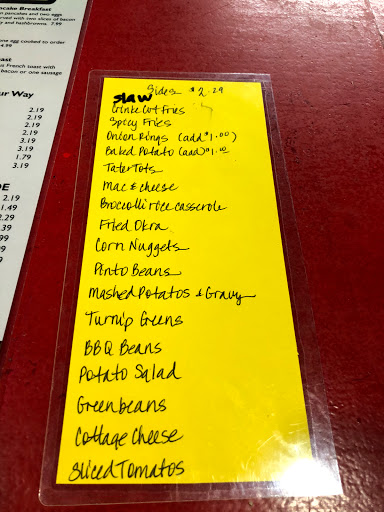 ncake Breakfast
pancakes and two eggs
erved with two slices of bacon
y and hashbrowns. 7.99
one egg cooked to order
4.99
ast
s French toast with
bacon or one sausage
ur Way
2.19
2.19
2.19
3.19
3.19
1.79
3.19
DE
Sides $2.29
slaw
Crinkle Cut Fries
Spicy Fries
Onion Rings (add $1.00)
Baked Potato (add $1.00
Tater Tots
Mac & cheese
Broccolli rice casserole
Fried Okra
Corn Nuggets
Pinto Beans
Mashed Potatos & Gravy
Turnip Greens
BBQ Beans
Potato Salad
Greenbeans
Cottage Cheese
Sliced Tomatos